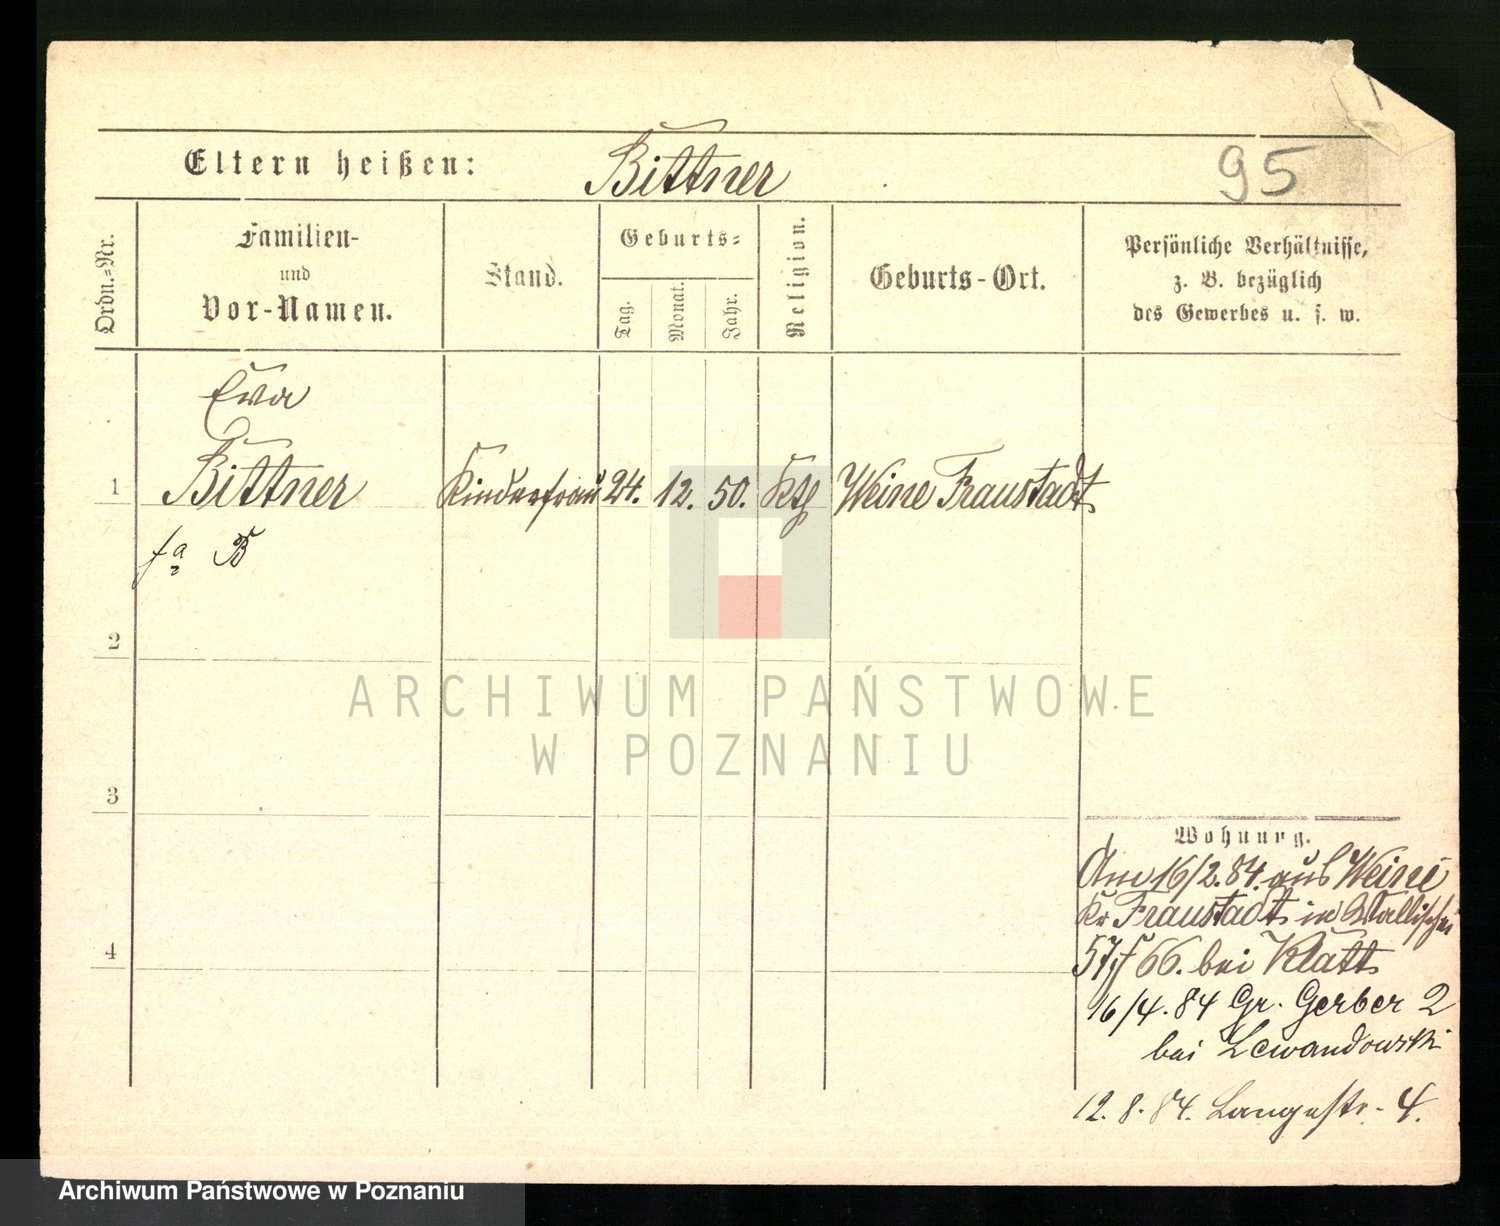 Eltern heißen: Bittner
95
Ordn.=Nr.
Familien-
und
Vor-Namen.
Stand.
Geburts=
Tag.
Monat.
Jahr.
Religion.
Geburts-Ort.
Persönliche Verhältnisse,
z. B. bezüglich
des Gewerbes u. s. w.
Eva
1 Bittner Kinderfrau 24. 12. 50. Kth Weine Fraustadt
B
2
ARCHIWUM PAŃSTWOWE
W POZNANIU
3
Wohnung.
Am 16/2. 84. aus Weine
Kr Fraustadt in Wallischei
4
66. bei Klatt
16/4. 84 Gr. Gerber 2
bei Lewandowski
12. 8. 84. Langestr. 4.
Archiwum Państwowe w Poznaniu